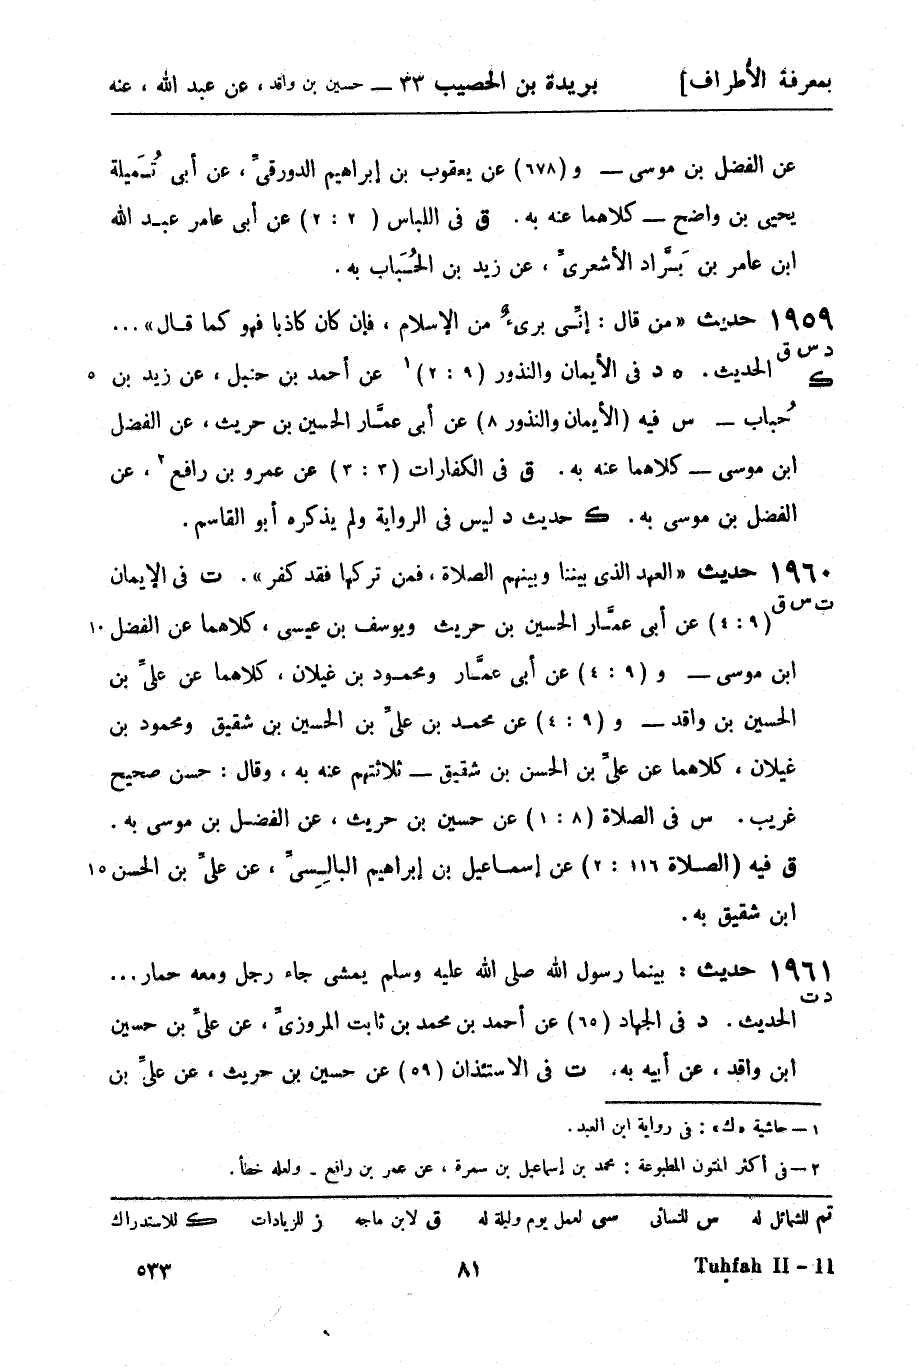 بمعرفة الأطراف] بريدة بن الحصيب ٣٣ ــ حسين بن واقد ، عن عبد الله ، عنه
عن الفضل بن موسى ــ و (٦٧٨) عن يعقوب بن إبراهيم الدورقىّ ، عن أبى تُـمَيلة
يحيى بن واضح ــ كلاهما عنه به. ق فى اللباس ( ٢ : ٢) عن أبى عامر عبـد الله
ابن عامر بن بَرَّاد الأشعرىّ ، عن زيد بن الحُبَاب به .
١٩٥٩ حديث «من قال : إنِّـى برىءٌ من الإسلام ، فإن كان كاذبا فهو كما قـال» ...
د س ق
ك
الحديث. ٥ د فى الأيمان والنذور (٩ : ٢)١ عن أحمد بن حنبل ، عن زيد بن ٥
حُباب ــ س فيه (الأيمان والنذور ٨) عن أبى عمَّار الحسين بن حريث ، عن الفضل
ابن موسى ــ كلاهما عنه به. ق فى الكفارات (٣ : ٣) عن عمرو بن رافع ٢، عن
الفضل بن موسى به. ك حديث د ليس فى الرواية ولم يذكره أبو القاسم.
١٩٦٠ حديث «العهد الذى بيننا وبينهم الصلاة ، فمن تركها فقد كفر». ت فى الإيمان
ت س ق
(٩ : ٤) عن أبى عمَّـار الحسين بن حريث ويوسف بن عيسى ، كلاهما عن الفضل ١٠
ابن موسى ــ و (٩ : ٤) عن أبى عمَّـار ومحمـود بن غيلان ، كلاهما عن علىّ بن
الحسين بن واقد ــ و (٩ : ٤) عن محمـد بن علىّ بن الحسين بن شقيق ومحمود بن
غيلان ، كلاهما عن علىّ بن الحسن بن شقيق ــ ثلاثتهم عنه به ، وقال : حسن صحيح
غريب. س فى الصلاة (٨ : ١) عن حسين بن حريث ، عن الفضـل بن موسى به .
ق فيه (الصـلاة ١١٦ : ٢) عن إسمـاعيل بن إبراهيم البالِـسىّ ، عن علىّ بن الحسن ١٥
ابن شقيق به .
١٩٦١ حديث : بينما رسول الله صلى الله عليه وسلم يمشى جاء رجل ومعه حمار...
د ت
الحديث. د فى الجهاد (٦٥) عن أحمد بن محمد بن ثابت المروزىّ ، عن علىّ بن حسين
ابن واقد ، عن أبيه به. ت فى الاستئذان (٥٩) عن حسين بن حريث ، عن علىّ بن
١ــ حاشية «ك» : فى رواية ابن العبد .
٢ــ فى أكثر المتون المطبوعة : محمد بن إسماعيل بن سمرة ، عن عمر بن رافع ـ ولعله خطأ .
تم للشمائل له س للنسائى سى لعمل يوم وليلة له ق لابن ماجه ز للزيادات ك للاستدراك
Tuḥfah II - 11 ٨١ ٥٣٣